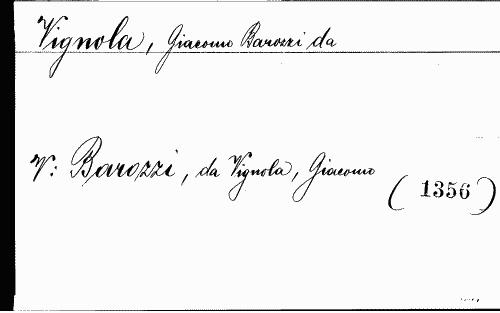 Vignola, Giacomo Barozzi da
V: Barozzi, da Vignola, Giacomo
(1356)